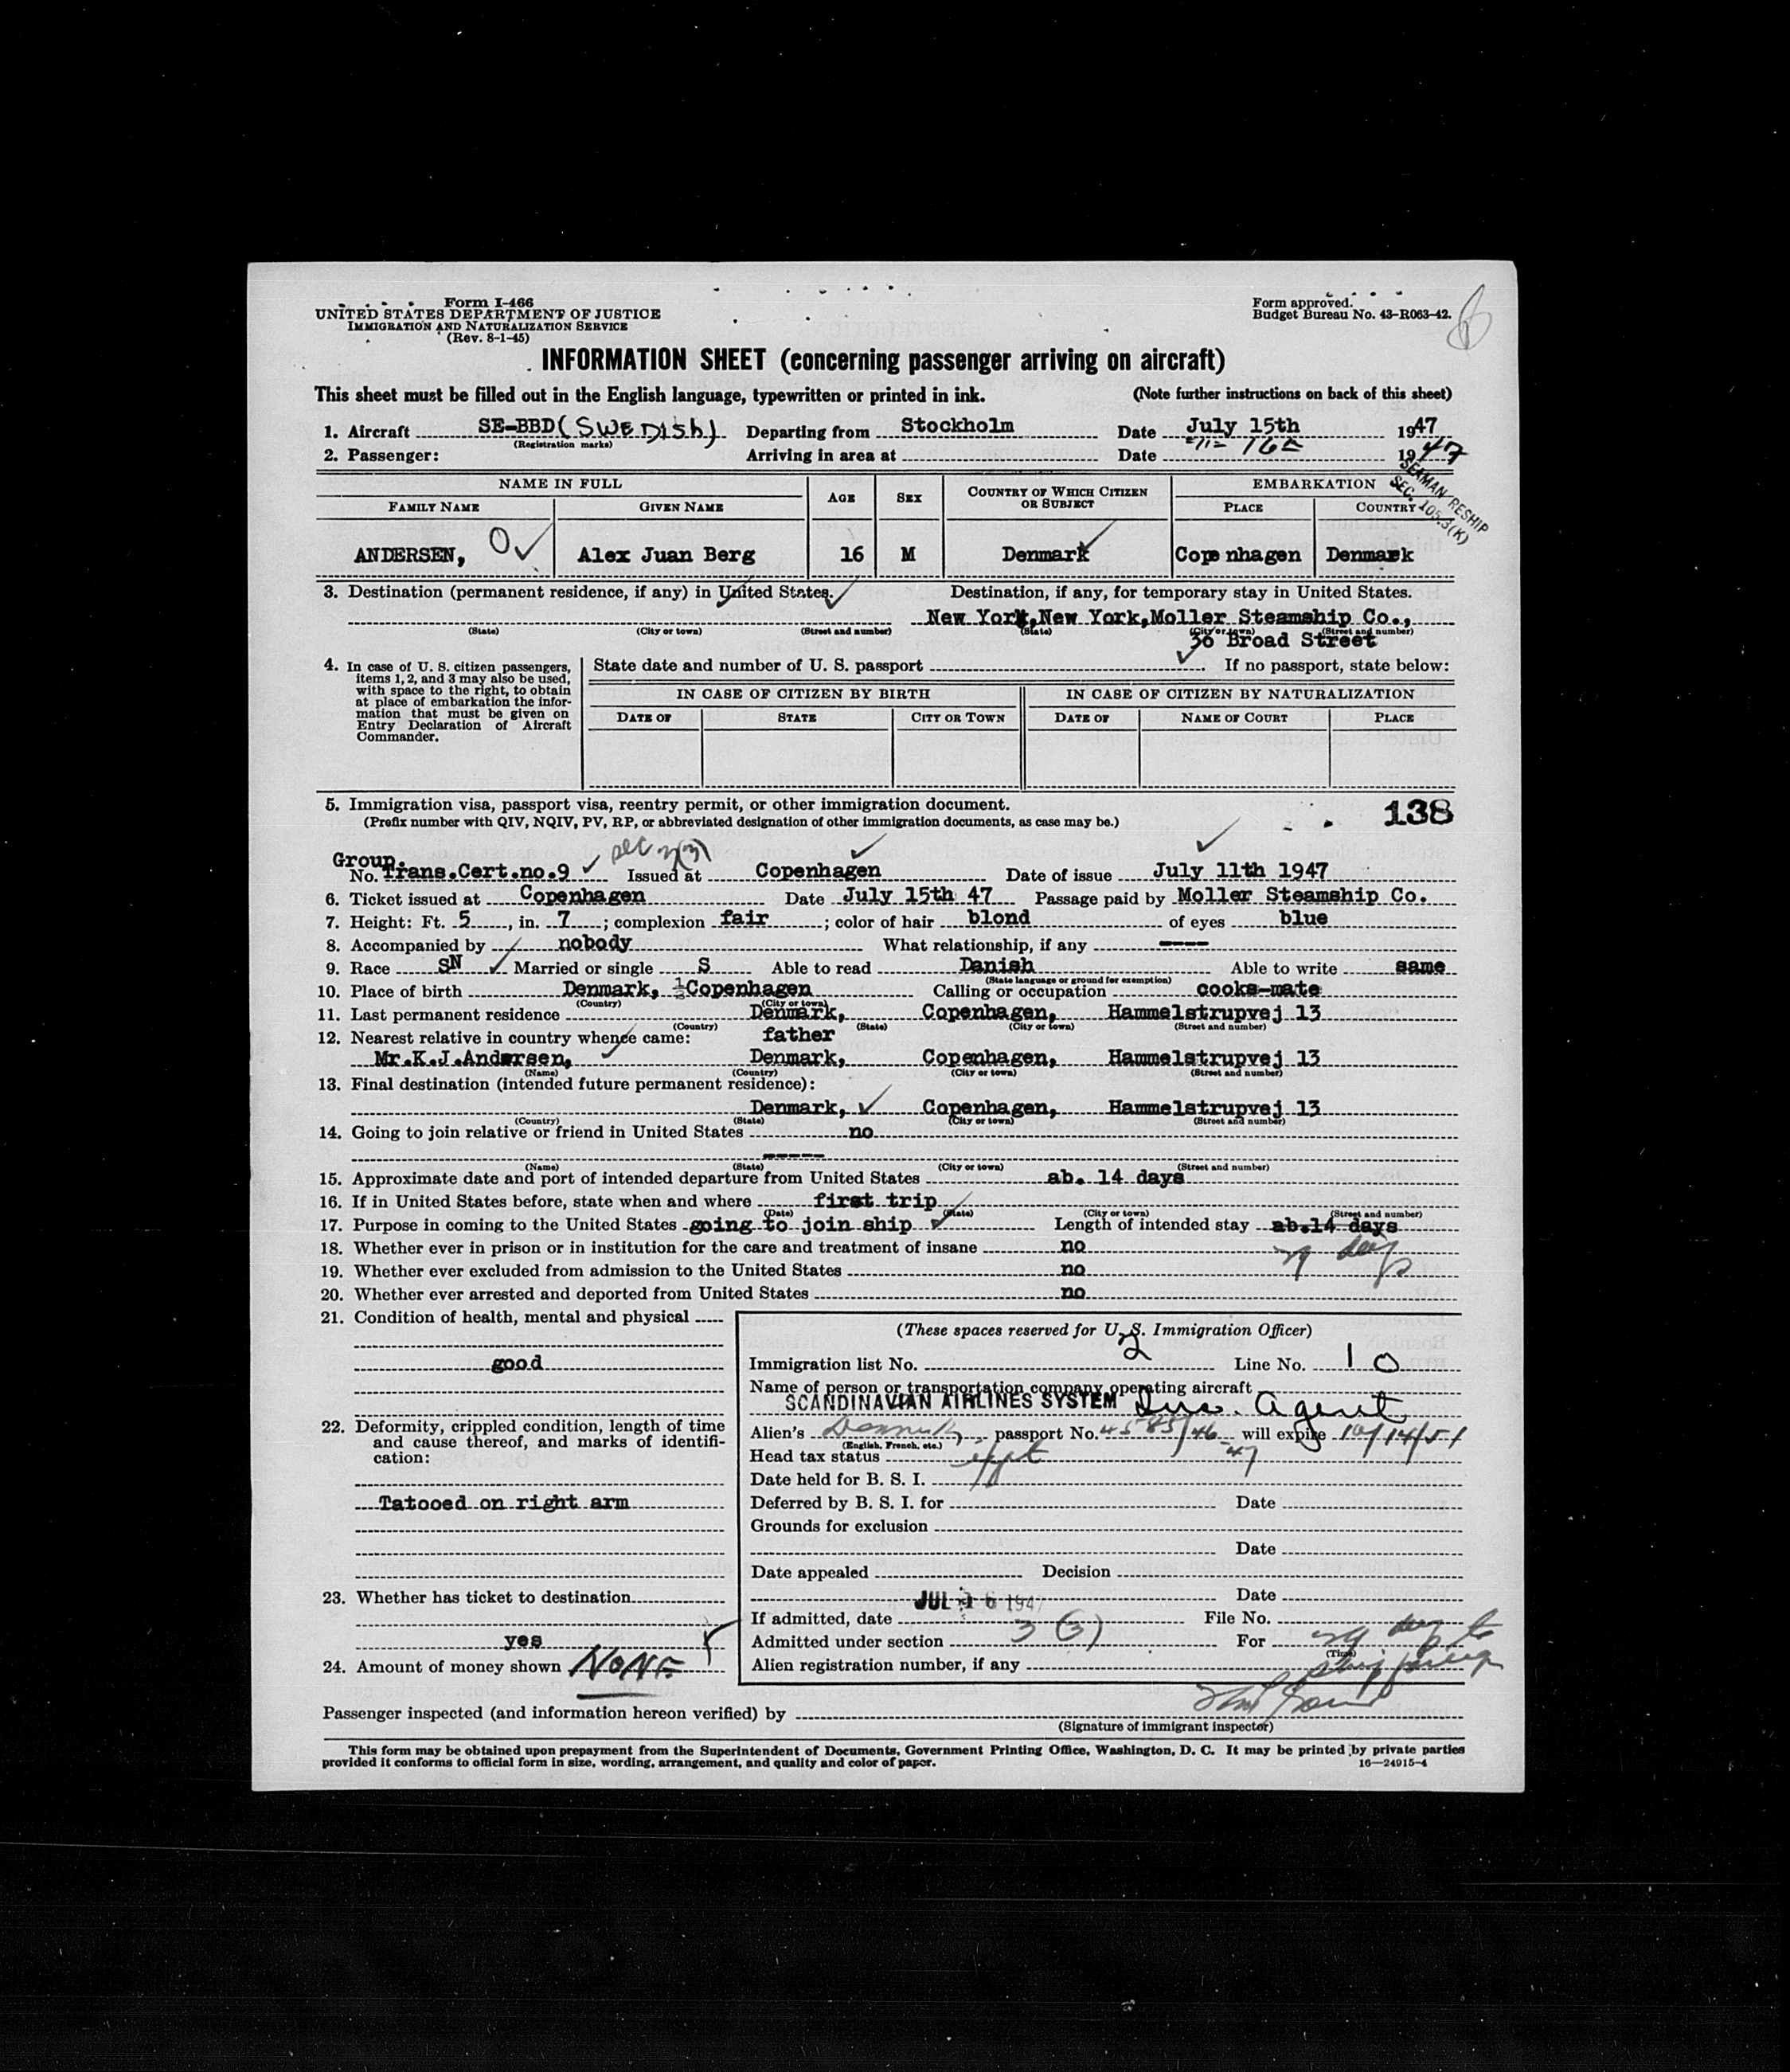 Form I-466
UNITED STATES DEPARTMENT OF JUSTICE
IMMIGRATION AND NATURALIZATION SERVICE
(Rev. 8-1-45)
Form approved.
Budget Bureau No. 43-R063-42.
INFORMATION SHEET (concerning passenger arriving on aircraft)
This sheet must be filled out in the English language, typewritten or printed in ink. (Note further instructions on back of this sheet)
1. Aircraft SE-BBD (SWEDISH) Departing from Stockholm Date July 15th 1947
(Registration marks)
2. Passenger: Arriving in area at Date -"- 16 1947
SEAMAN RESHIP
SEC. 105.3(K)
NAME IN FULL AGE SEX COUNTRY OF WHICH CITIZEN OR SUBJECT EMBARKATION
FAMILY NAME GIVEN NAME PLACE COUNTRY
ANDERSEN, Alex Juan Berg 16 M Denmark Copenhagen Denmark
3. Destination (permanent residence, if any) in United States. Destination, if any, for temporary stay in United States.
New York, New York, Moller Steamship Co.,
(State) (City or town) (Street and number) (State) (City or town) (Street and number)
30 Broad Street
4. In case of U. S. citizen passengers, items 1, 2, and 3 may also be used, with space to the right, to obtain at place of embarkation the information that must be given on Entry Declaration of Aircraft Commander.
State date and number of U. S. passport If no passport, state below:
IN CASE OF CITIZEN BY BIRTH IN CASE OF CITIZEN BY NATURALIZATION
DATE OF STATE CITY OR TOWN DATE OF NAME OF COURT PLACE
5. Immigration visa, passport visa, reentry permit, or other immigration document. 138
(Prefix number with QIV, NQIV, PV, RP, or abbreviated designation of other immigration documents, as case may be.)
sec 3(3)
Group.
No. Trans.Cert.no.9 Issued at Copenhagen Date of issue July 11th 1947
6. Ticket issued at Copenhagen Date July 15th 47 Passage paid by Moller Steamship Co.
7. Height: Ft. 5, in. 7; complexion fair; color of hair blond of eyes blue
8. Accompanied by nobody What relationship, if any ----
9. Race SN Married or single S Able to read Danish Able to write same
(State language or ground for exemption)
10. Place of birth Denmark, Copenhagen Calling or occupation cooks-mate
(Country) (City or town)
11. Last permanent residence Denmark, Copenhagen, Hammelstrupvej 13
(Country) (State) (City or town) (Street and number)
12. Nearest relative in country whence came: father
Mr.K.J.Andersen, Denmark, Copenhagen, Hammelstrupvej 13
(Name) (Country) (City or town) (Street and number)
13. Final destination (intended future permanent residence):
Denmark, Copenhagen, Hammelstrupvej 13
(Country) (State) (City or town) (Street and number)
14. Going to join relative or friend in United States no
-----
(Name) (State) (City or town) (Street and number)
15. Approximate date and port of intended departure from United States ab. 14 days
16. If in United States before, state when and where first trip
(Date) (State) (City or town) (Street and number)
17. Purpose in coming to the United States going to join ship Length of intended stay ab.14 days
29 days
18. Whether ever in prison or in institution for the care and treatment of insane no
19. Whether ever excluded from admission to the United States no
20. Whether ever arrested and deported from United States no
21. Condition of health, mental and physical
good
22. Deformity, crippled condition, length of time and cause thereof, and marks of identification:
Tatooed on right arm
23. Whether has ticket to destination
yes
24. Amount of money shown NONE
(These spaces reserved for U. S. Immigration Officer)
Immigration list No. 2 Line No. 10
Name of person or transportation company operating aircraft
SCANDINAVIAN AIRLINES SYSTEM Ins. Agent
Alien's Danish passport No. 4585/46-47 will expire 10/14/51
(English, French, etc.)
Head tax status
Date held for B. S. I.
Deferred by B. S. I. for Date
Grounds for exclusion
Date
Date appealed Decision
Date
If admitted, date JUL 16 1947 File No.
Admitted under section 3 (3) For 29 days to
(Time)
ship foreign
Alien registration number, if any
Passenger inspected (and information hereon verified) by
(Signature of immigrant inspector)
This form may be obtained upon prepayment from the Superintendent of Documents, Government Printing Office, Washington, D. C. It may be printed by private parties
provided it conforms to official form in size, wording, arrangement, and quality and color of paper. 16—24915-4